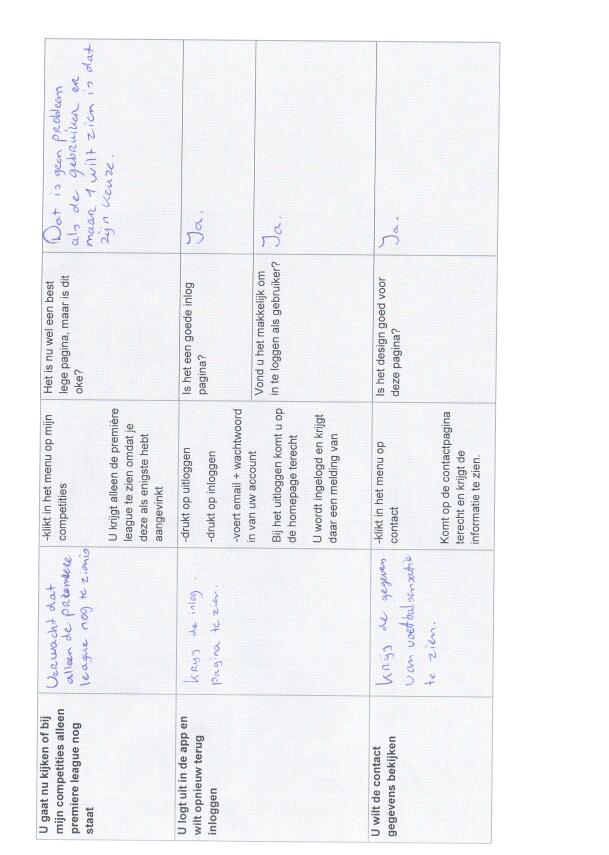 U gaat nu kijken of bij
mijn competities alleen
premiere league nog
staat
Verwacht dat
alleen de premiere
league nog te zien is
-klikt in het menu op mijn
competities
U krijgt alleen de première
league te zien omdat je
deze als enigste hebt
aangevinkt
Het is nu wel een best
lege pagina, maar is dit
oke?
Dat is geen probleem
als de gebruiker er
maar 1 wilt zien is dat
zijn keuze.
U logt uit in de app en
wilt opnieuw terug
inloggen
Krijg de inlog
pagina te zien.
-drukt op uitloggen
-drukt op inloggen
-voert email + wachtwoord
in van uw account
Bij het uitloggen komt u op
de homepage terecht
U wordt ingelogd en krijgt
daar een melding van
Is het een goede inlog
pagina?
Ja.
Vond u het makkelijk om
in te loggen als gebruiker?
Ja.
U wilt de contact
gegevens bekijken
Krijg de gegevens
van voetbalsensatie
te zien.
-klikt in het menu op
contact
Komt op de contactpagina
terecht en krijgt de
informatie te zien.
Is het design goed voor
deze pagina?
Ja.